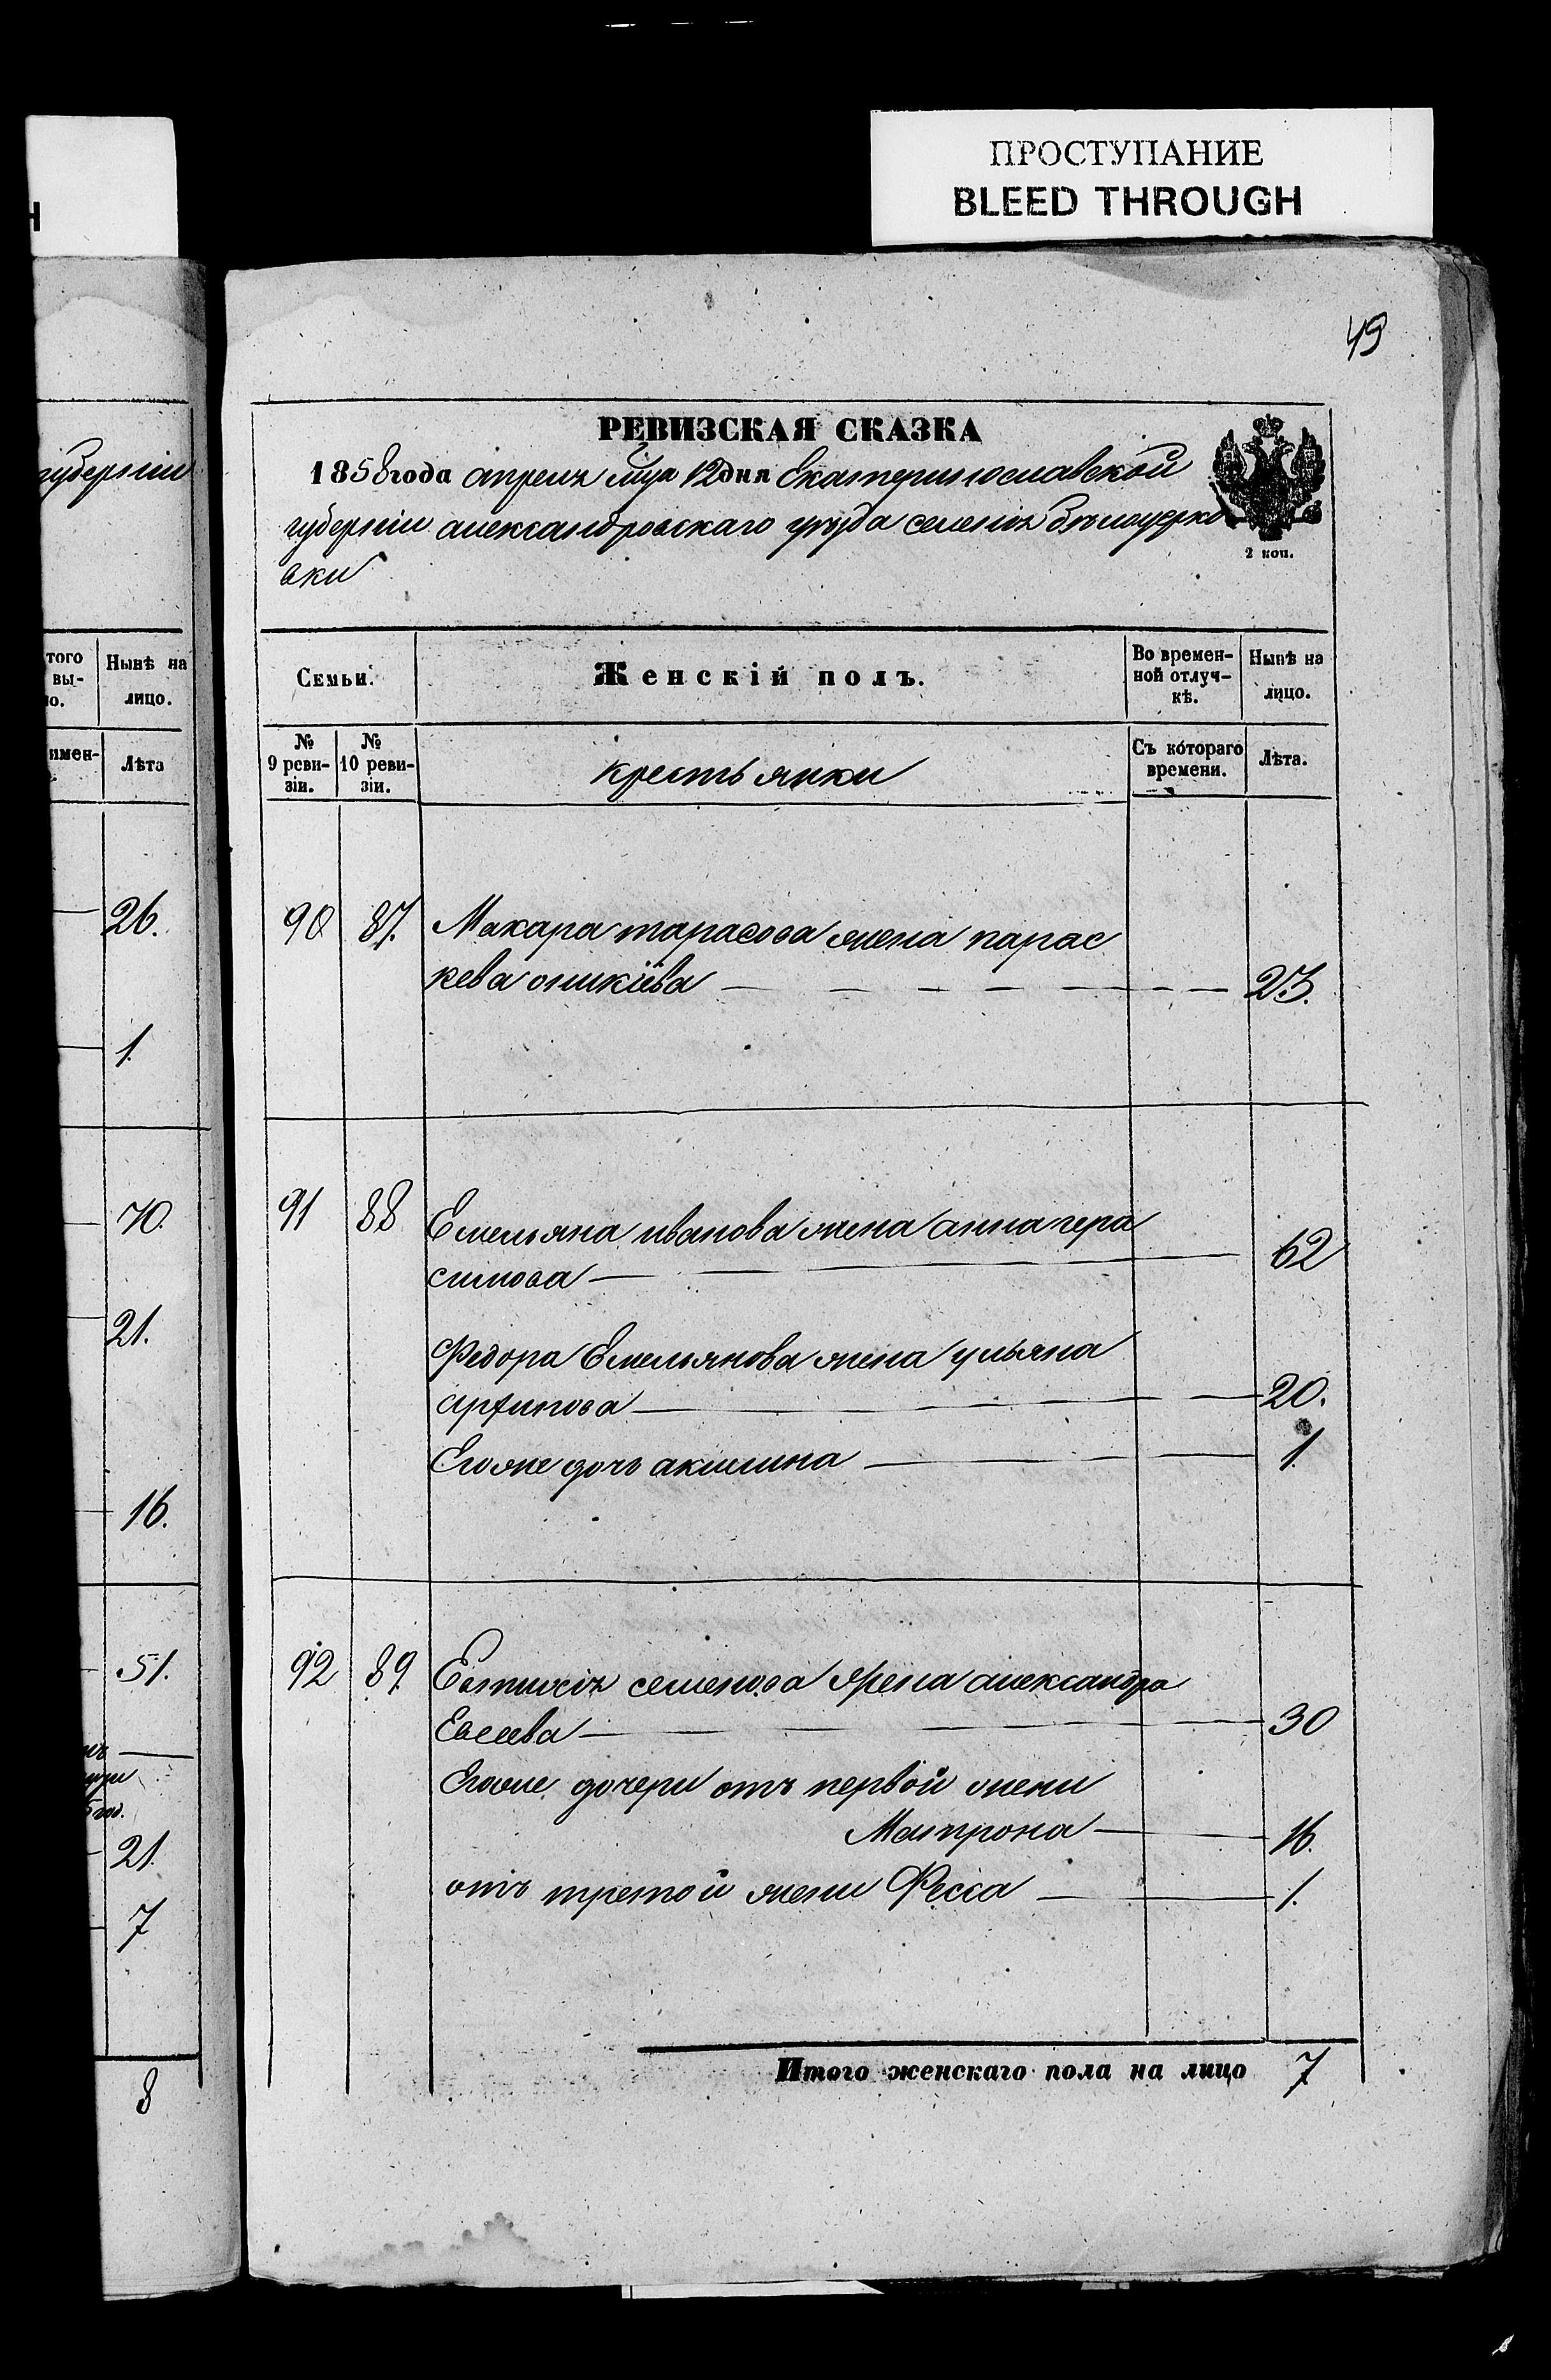 ПРОСТУПАНИЕ
BLEED THROUGH
49
РЕВИЗСКАЯ СКАЗКА
1858 года апреля мца 12 дня Екатеринославской
губернии александровскаго уезда селения белоцерко
вки
2 коп.
Семьи.
Женскій полъ.
Во времен-
ной отлуч-
кѣ.
Нынѣ на
лицо.
№
9 реви-
зіи.
№
10 реви-
зіи.
крестьянки
Съ котораго
времени.
Лѣта.
90 87. Макара тарасова жена парас
кева оникіева 23.
91 88 Емельяна иванова жена анна гера
симова 62
Федора Емельянова жена ульяна
архипова 20.
Егоже дочь акилина 1.
92 89. Евтихія семенова жена александра
Евсеева 30
Егоже дочери отъ первой жени
Матрона 16.
отъ третой жени Фесса 1.
Итого женскаго пола на лицо 7
губерніи
того
вы-
Нынѣ на
лицо.
имен-
Лѣта
26.
1.
70.
21.
16.
51.
21.
7
8